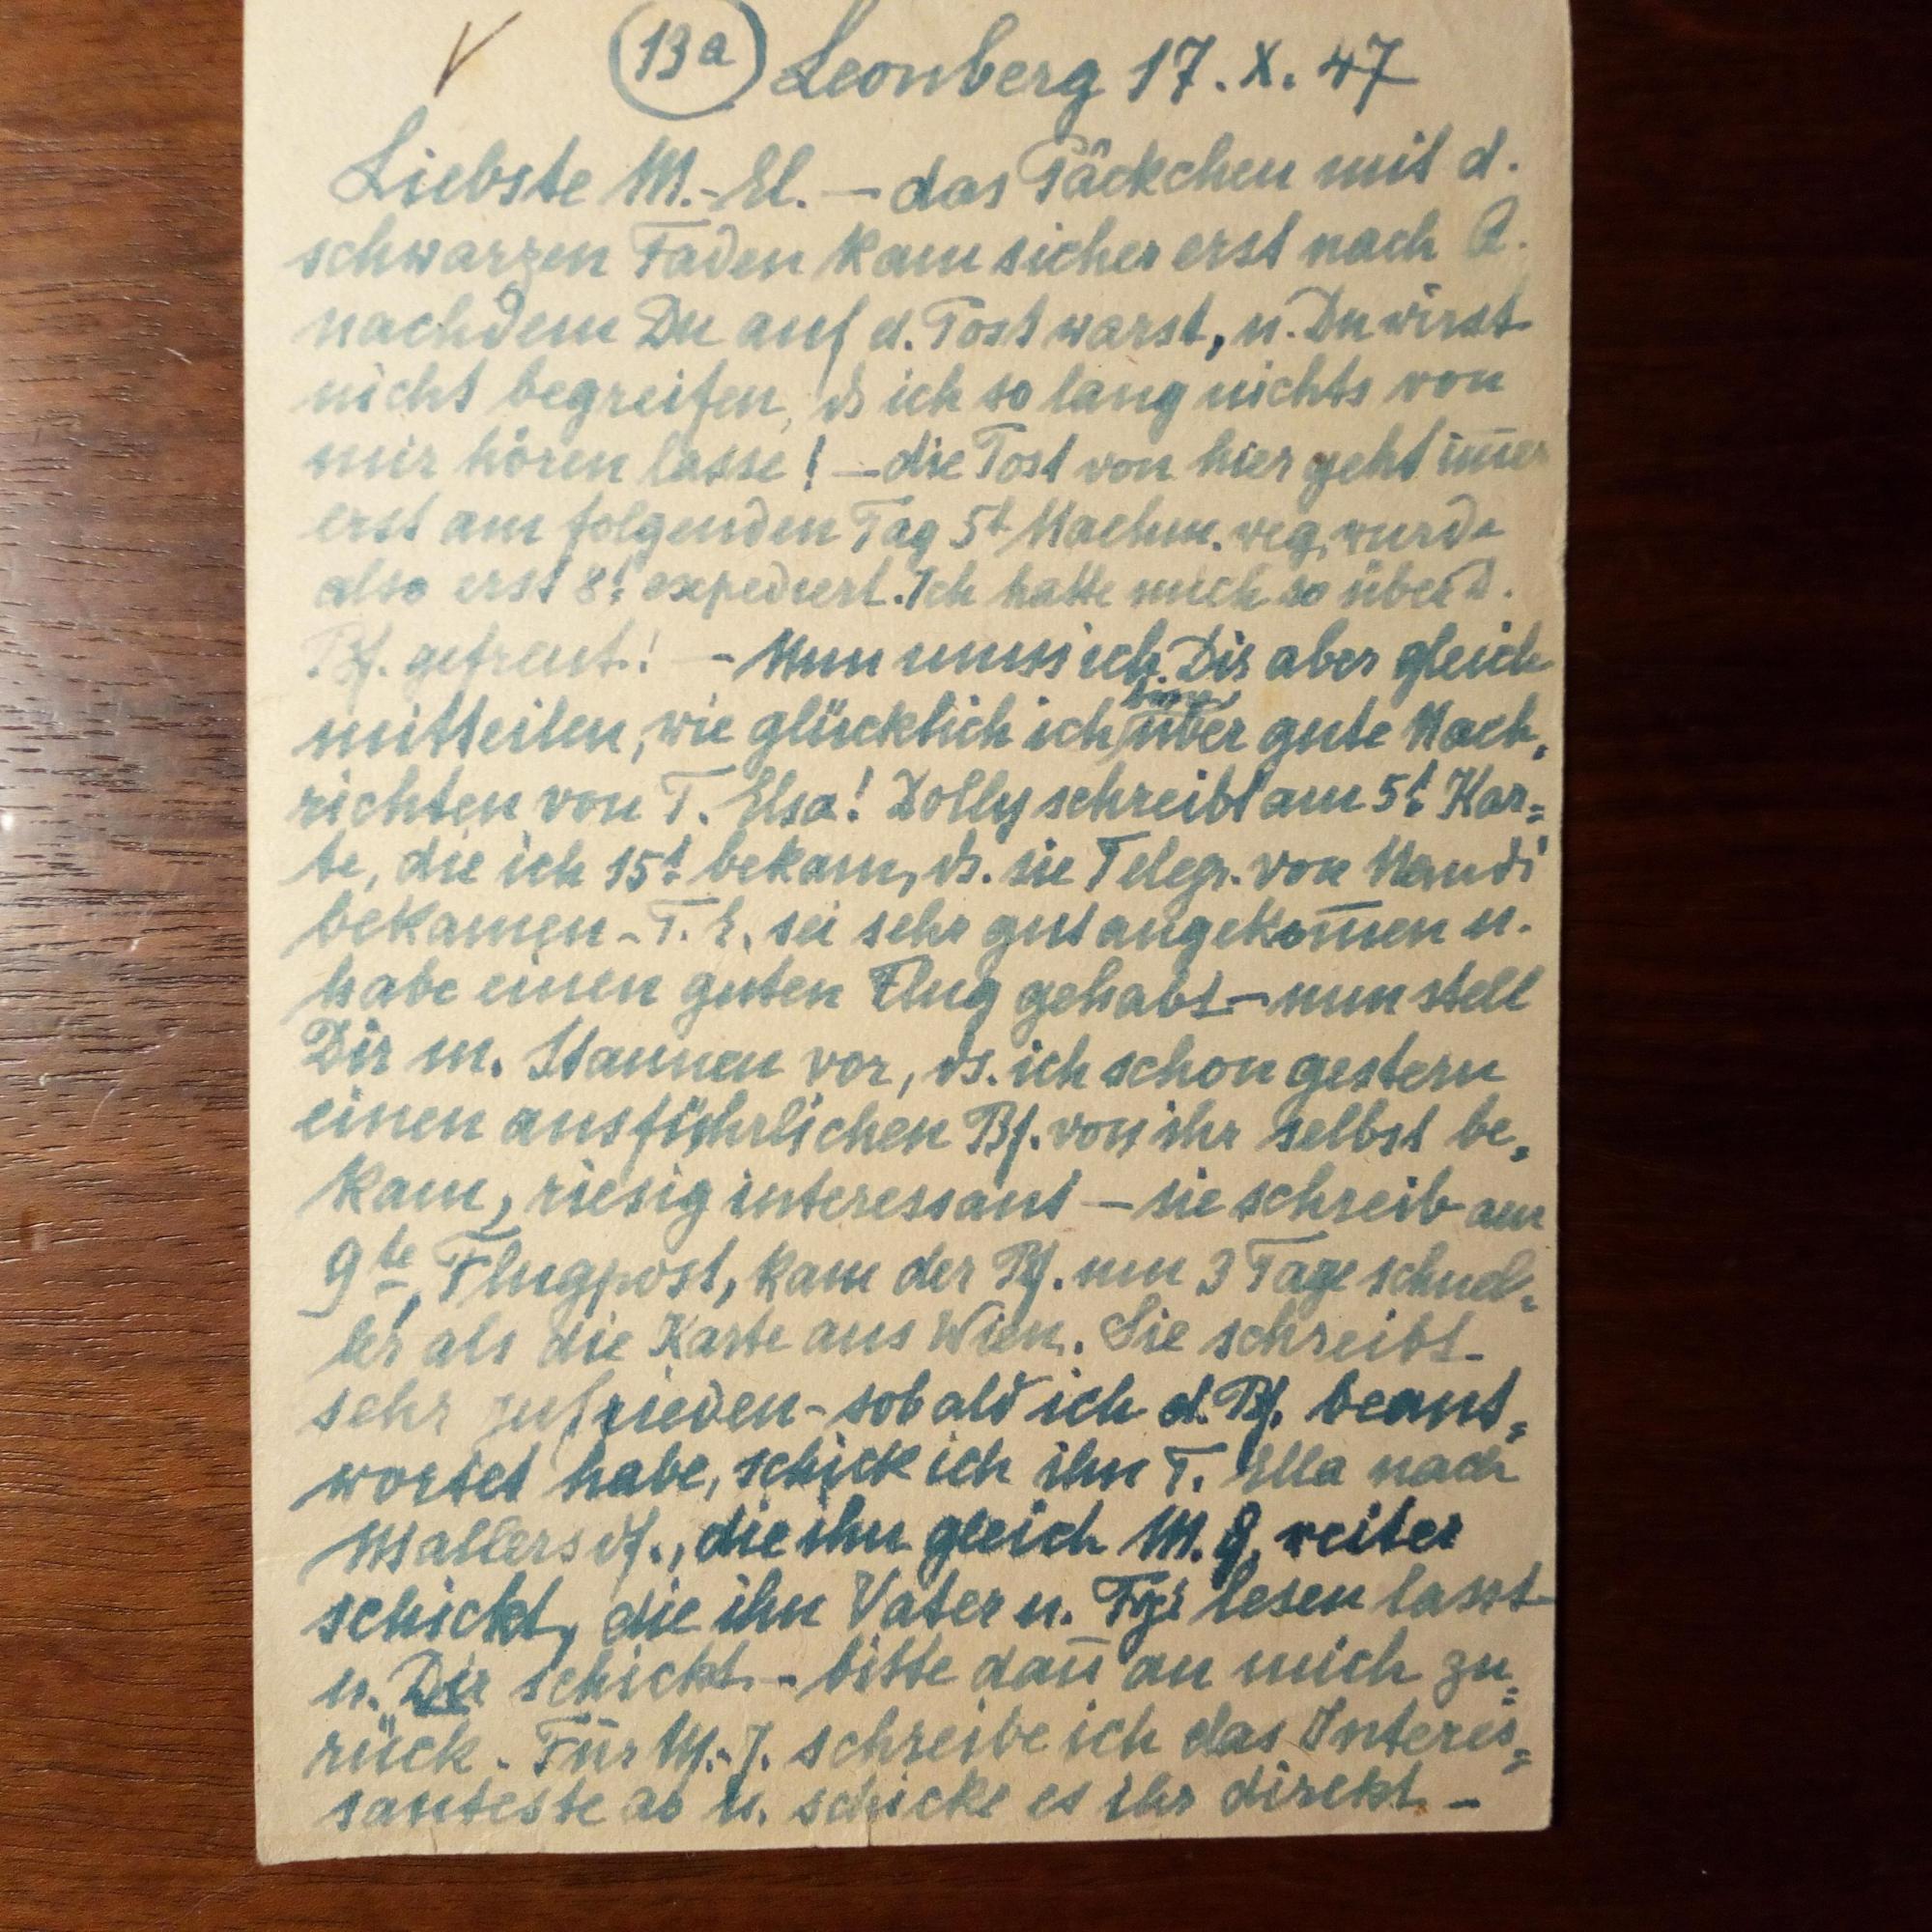 13a Leonberg 17. X. 47
Liebste M.-El. — das Päckchen mit d.
schwarzen Faden kam sicher erst nach A.
nachdem Du auf d. Post warst, u. Du wirst
nicht begreifen, ds ich so lang nichts von
mir hören lasse! — die Post von hier geht im̄er
erst am folgenden Tag 5t Nachm. weg, wurde
also erst 8t expediert. Ich hatte mich so über D.
Bf. gefreut! — Nun muss ich Dir aber gleich
mitteilen, wie glücklich ich bin über gute Nach,
richten von T. Elsa! Dolly schreibt am 5t Kar=
te, die ich 15t bekam, ds. sie Telegr. von Mandi
bekamen - T. E. sei sehr gut angekom̄en u.
habe einen guten Flug gehabt — nun stell
Dir m. Staunen vor, ds. ich schon gestern
einen ausführlichen Bf. von ihr selbst be,
kam, riesig interessant — sie schreib am
9te, Flugpost, kam der Bf. um 3 Tage schnel=
ler als die Karte aus Wien. Sie schreibt
sehr zufrieden - sobald ich d. Bf. beant,
wortet habe, schick ich ihn T. Ella nach
Mallersdf., die ihn gleich M. G. weiter
schickt, die ihn Vater u. lesen lässt
u. Dir schickt - bitte dan̄ an mich zu=
rück. Für M.-J. schreibe ich das Interes=
santeste ab u. schicke es ihr direkt —